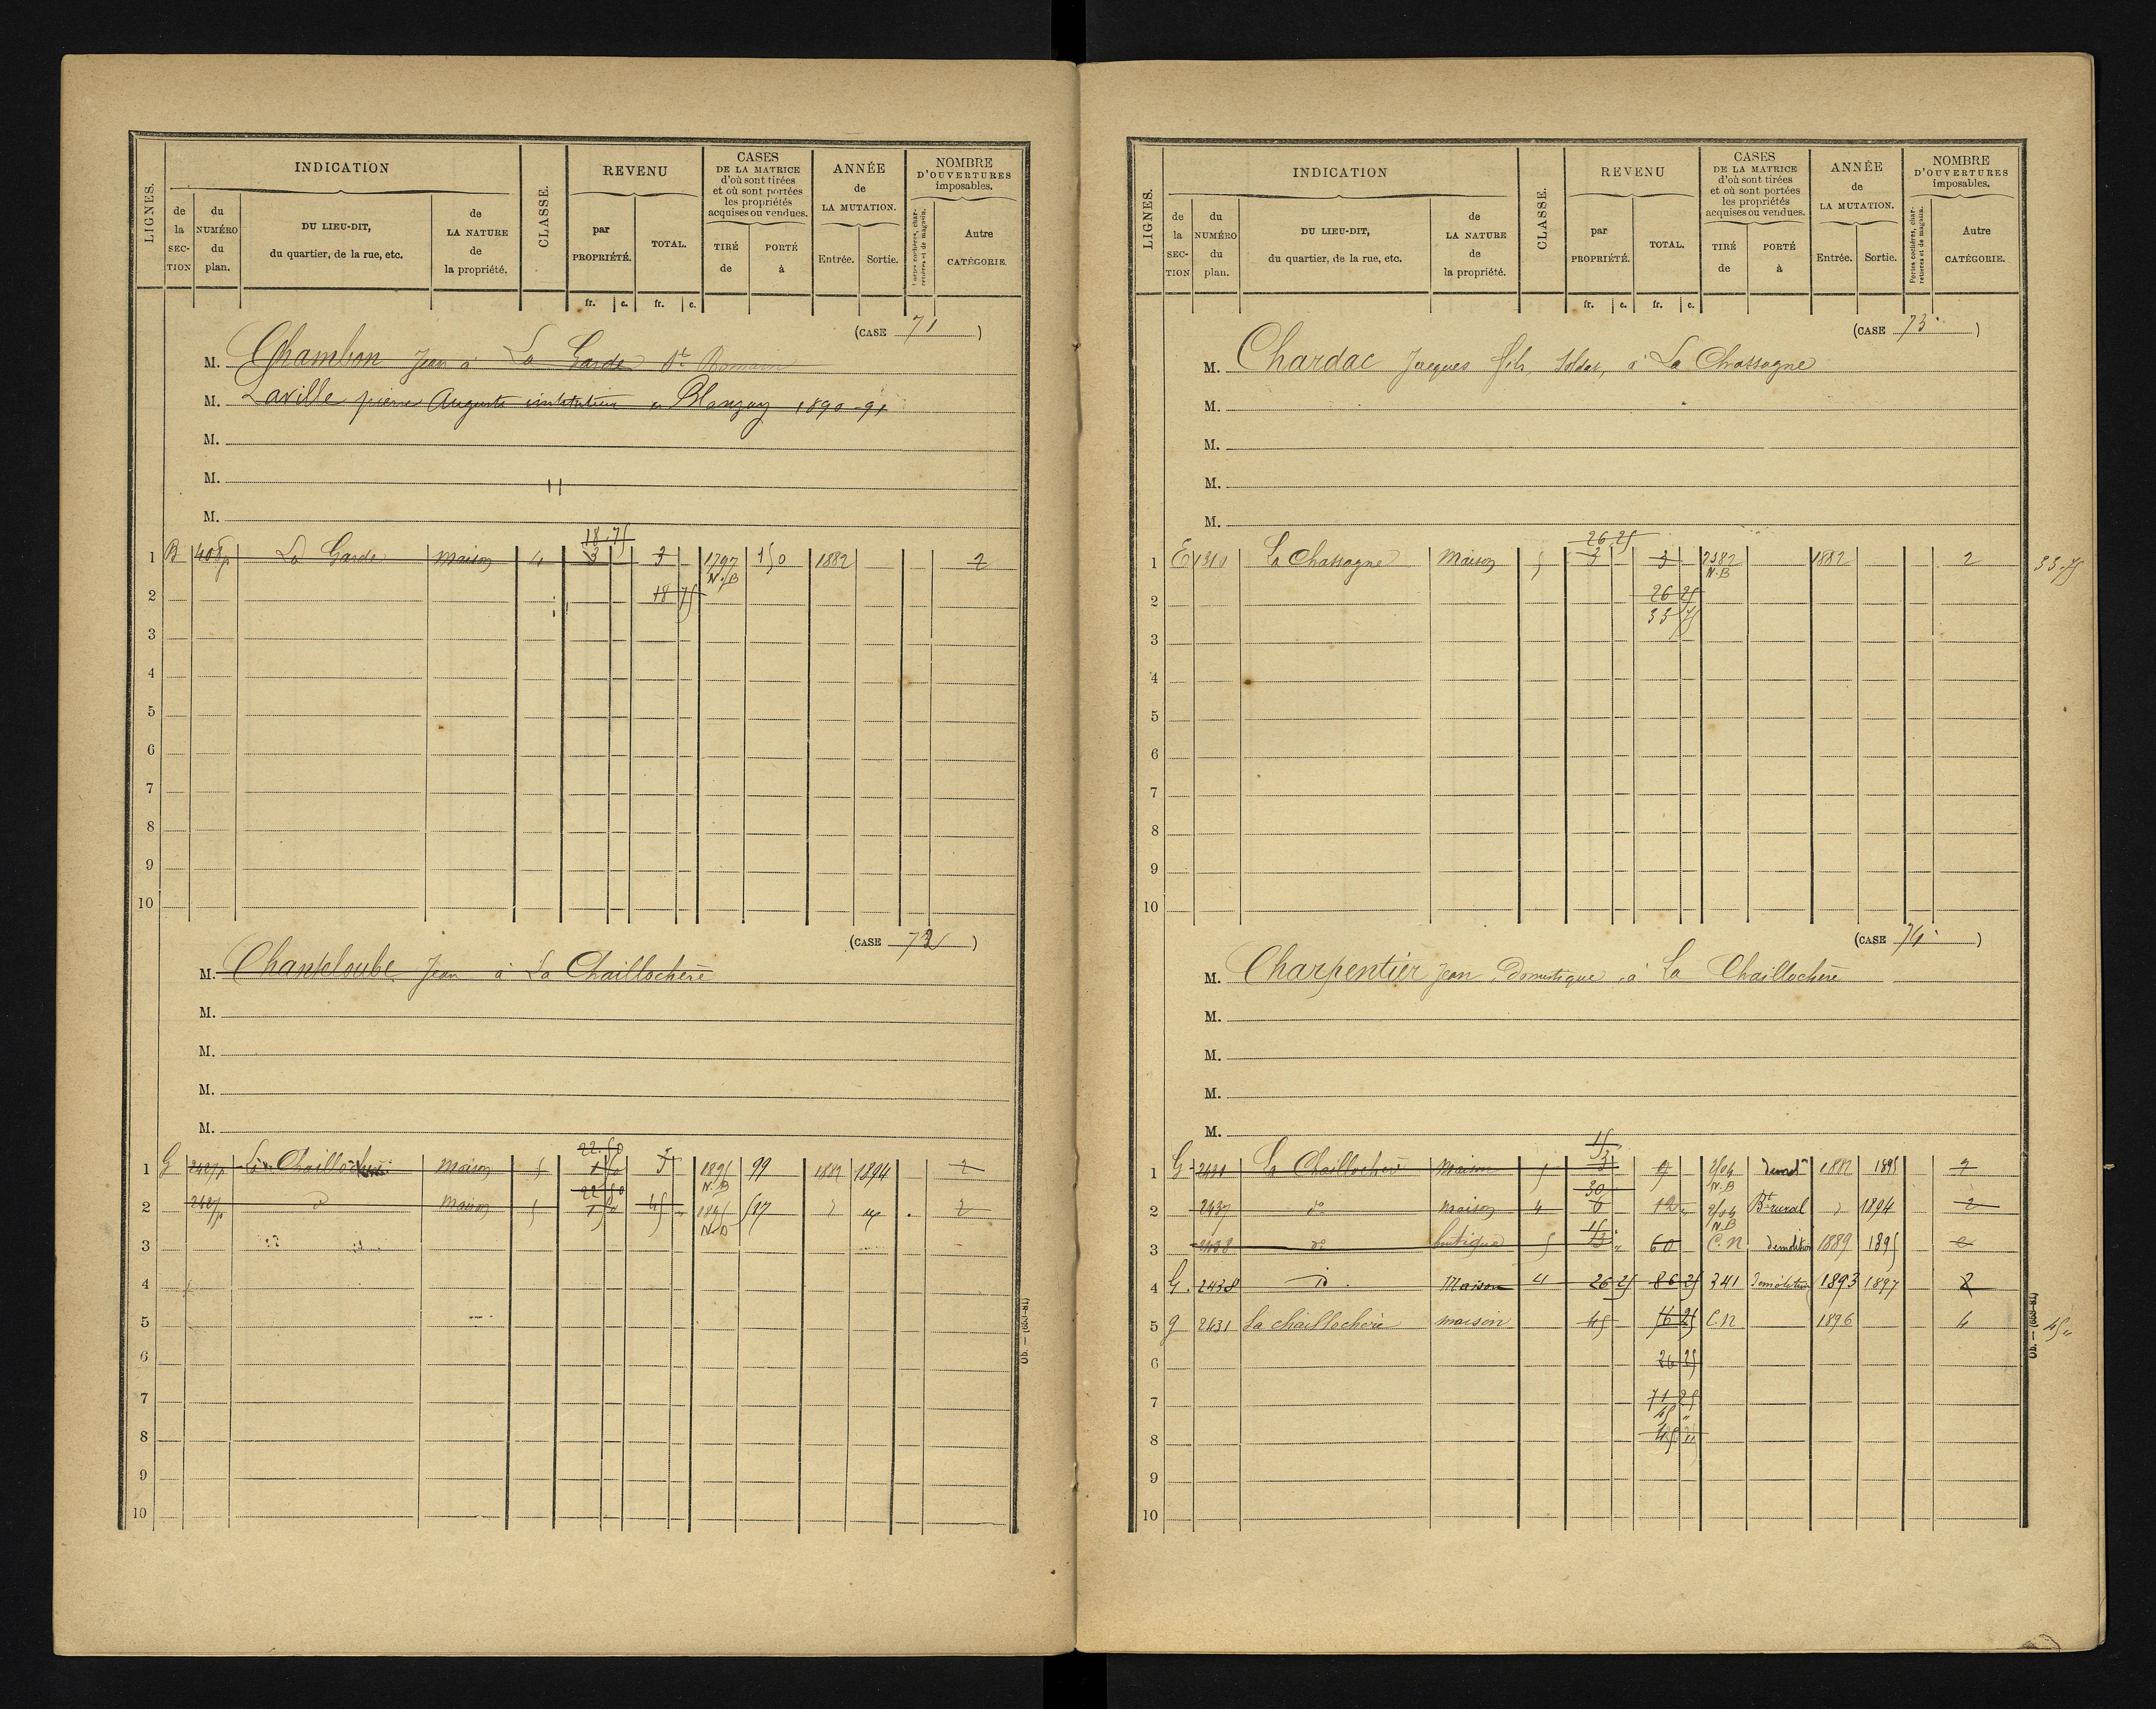 LIGNES. INDICATION CLASSE. REVENU CASES DE LA MATRICE d'où sont tirées et où sont portées les propriétés acquises ou vendues. ANNÉE de LA MUTATION. NOMBRE D'OUVERTURES imposables.
de la SECTION du NUMÉRO du plan. DU LIEU-DIT, du quartier, de la rue, etc. de LA NATURE de la propriété. par PROPRIÉTÉ. TOTAL. TIRÉ de PORTÉ à Entrée. Sortie. Portes cochères, charretières et de magasin. Autre CATÉGORIE.
fr. c. fr. c.
(CASE 71)
M. Chambon Jean à La Garde St Romain
M. Laville pierre Auguste instituteur à Blanzay 1890-91
M.
M.
M.
18.75
1 B 408p La Garde Maison 4 3 3 1797 N.B 150 1882 2
2 18 75
3
4
5
6
7
8
9
10
(CASE 72)
M. Chanteloube Jean à La Chaillochère
M.
M.
M.
M.
22.50
1 G 2427p La Chaillochère Maison 5 1 50 3 1895 N.B 99 1882 1894 2
22 50
2 2427p d Maison 5 1 50 45 1895 N.B 517 2
3
4
5
6
7
8
9
10
Ob. — (653-81)
LIGNES. INDICATION CLASSE. REVENU CASES DE LA MATRICE d'où sont tirées et où sont portées les propriétés acquises ou vendues. ANNÉE de LA MUTATION. NOMBRE D'OUVERTURES imposables.
de la SECTION du NUMÉRO du plan. DU LIEU-DIT, du quartier, de la rue, etc. de LA NATURE de la propriété. par PROPRIÉTÉ. TOTAL. TIRÉ de PORTÉ à Entrée. Sortie. Portes cochères, charretières et de magasin. Autre CATÉGORIE.
fr. c. fr. c.
(CASE 73)
M. Chardac Jacques fils, Soldat, à La Chassagne
M.
M.
M.
M.
26.25
1 E 1310 La Chassagne Maison 5 3 3 2382 N.B 1882 2 33.75
2 26 25
33 75
3
4
5
6
7
8
9
10
(CASE 74)
M. Charpentier Jean, Domestique, à La Chaillochère
M.
M.
M.
M.
15
1 G 2431 La Chaillochère Maison 5 3 9 N.B 1882 1895 2
30
2 2437 do Maison 4 6 12 N.B Bt rural 1894 2
15
3 2438 do boutique 5 3 60 C.N démolition 1889 1895
4 G. 2438 id. Maison 4 26 25 86 25 341 Démolition 1893 1897 2
5 g 2431 La chaillochère maison 45 76 25 C.N 1896 4 45 "
6 26 25
7 71 25
45 "
8 45 "
9
10
Ob. — (653-81)